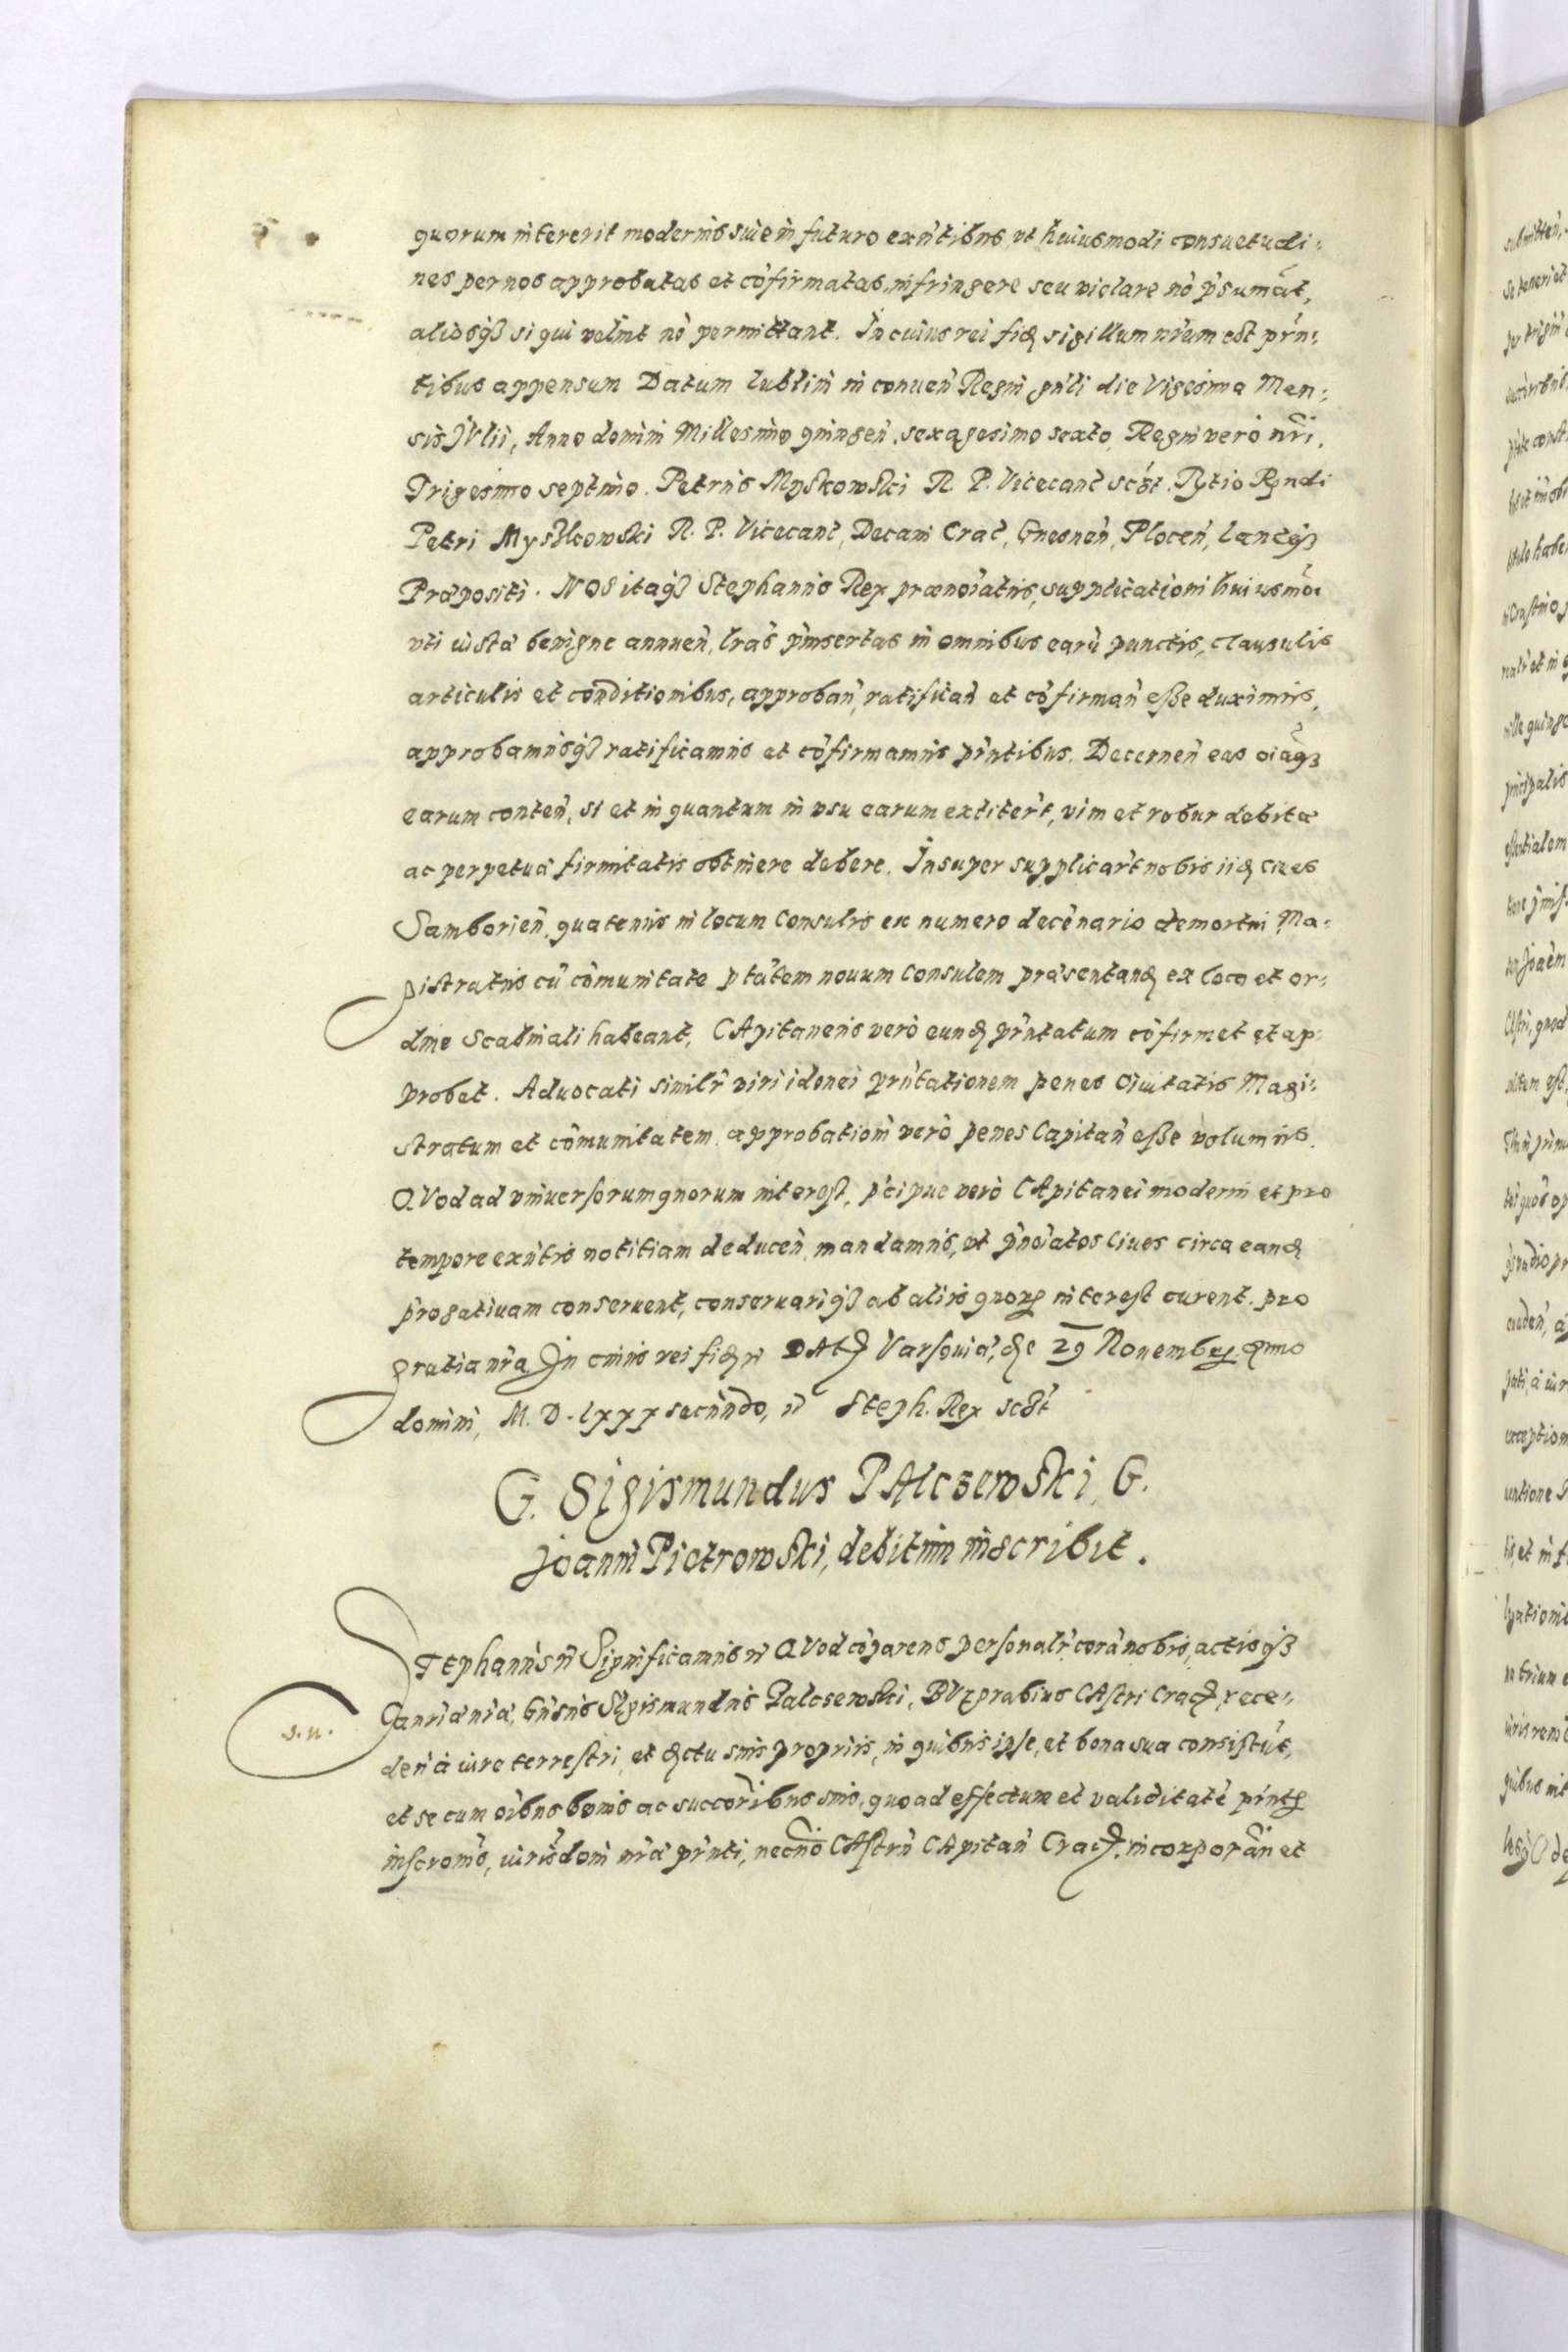 quorum intererit modernis siue in futuro exn̄tibus, vt huiusmodi consuetudi:
nes per nos approbatas et cōfirmatas, infringere seu violare nō p̄sumāt,
aliosq̃ si qui velint nō permittant. In cuius rei fid sigillum nr̄um est pr̄n:
tibus appensum Datum lublin in conuen̄ Regni gn̄li die Vigesima Men:
sis JVlii, Anno domini Millesimo quingen̄. sexagesimo sexto, Regni verò nr̄i.
Trigesimo septimo. Petrus Myskowski R. P. Vicecanc̄ scs̄t. Rl̄tio Rn̄di
Petri Myskowski R. P. Vicecanc̄, Decani Crac̄, Gnesnen̄, Plocen̄, lancq̃
Præpositi. NOS itaq̃ Stephanus Rex prænoīatus, supplicationi huiusmōi
vti iusta benigne annuen̄, lr̄as p̄insertas in omnibus earū punctis, clausulis
articulis et conditionibus, approban̄, ratifican̄ et cōfirman̄ esse duximus,
approbamusq̃ ratificamus et cōfirmamus pr̄ntibus. Decernen̄ eas oīaq̃
earum conten̄, si et in quantum in vsu earum extiter̄t, vim et robur debitæ
ac perpetuæ firmitatis obtinere debere. Insuper supplicar̄t nobis iid ciues
Samborien̄, quatenus in locum Consulis ex numero decēnario demortui Ma:
gistratus cū cōmunitate p̄tātem nouum Consulem præsentand ex loco et or:
dine Scabinali habeant, CApitaneus verò eund pr̄ntatum cōfirmet et ap:
probet. Aduocati similr̄ viri idonei prn̄tationem penes Ciuitatis Magi:
stratum et cōmunitatem approbationē verò penes Capitan̄ esse volumus.
QVod ad vniuersorum quorum interest, p̄cipue verò CApitanei moderni et pro
tempore exn̄tis notitiam deducen̄ mandamus, vt p̄noīatos Ciues circa eand
p̄rogatiuam conseruent, conseruariq̃ ab aliis quorꝝ interest curent. pro
gratia nr̄a In cuius rei fid n̄ DAtꝫ Varsouiæ, de 29 Nouembꝝ Anno
domini, M. D. lxxx secundo, n̄ Steph. Rex scs̄t
G. Sigismundus PAlczewski, G.
Joanni Pietrowski, debitum inscribit.
STephanus n̄ Significamus n̄ QVod cōparens personalr̄ corā nobis, actisq̃
Canr̄iæ nr̄æ, Gn̄sus Sigismundus Palczewski, BVrgrabius CAstri Cracꝫ, rece:
den̄ à iure terrestri, et dctu suis propriis, in quibus ipse, et bona sua consistūt,
s. n.
et se cum oībus bonis ac succoribus suis, quo ad effectum et validitatē pr̄ntꝝ
inscromis, iurisdom̄ nr̄æ pr̄nti, necnō CAstrn̄ CApitan̄ Cracꝫ, incorporan̄ et